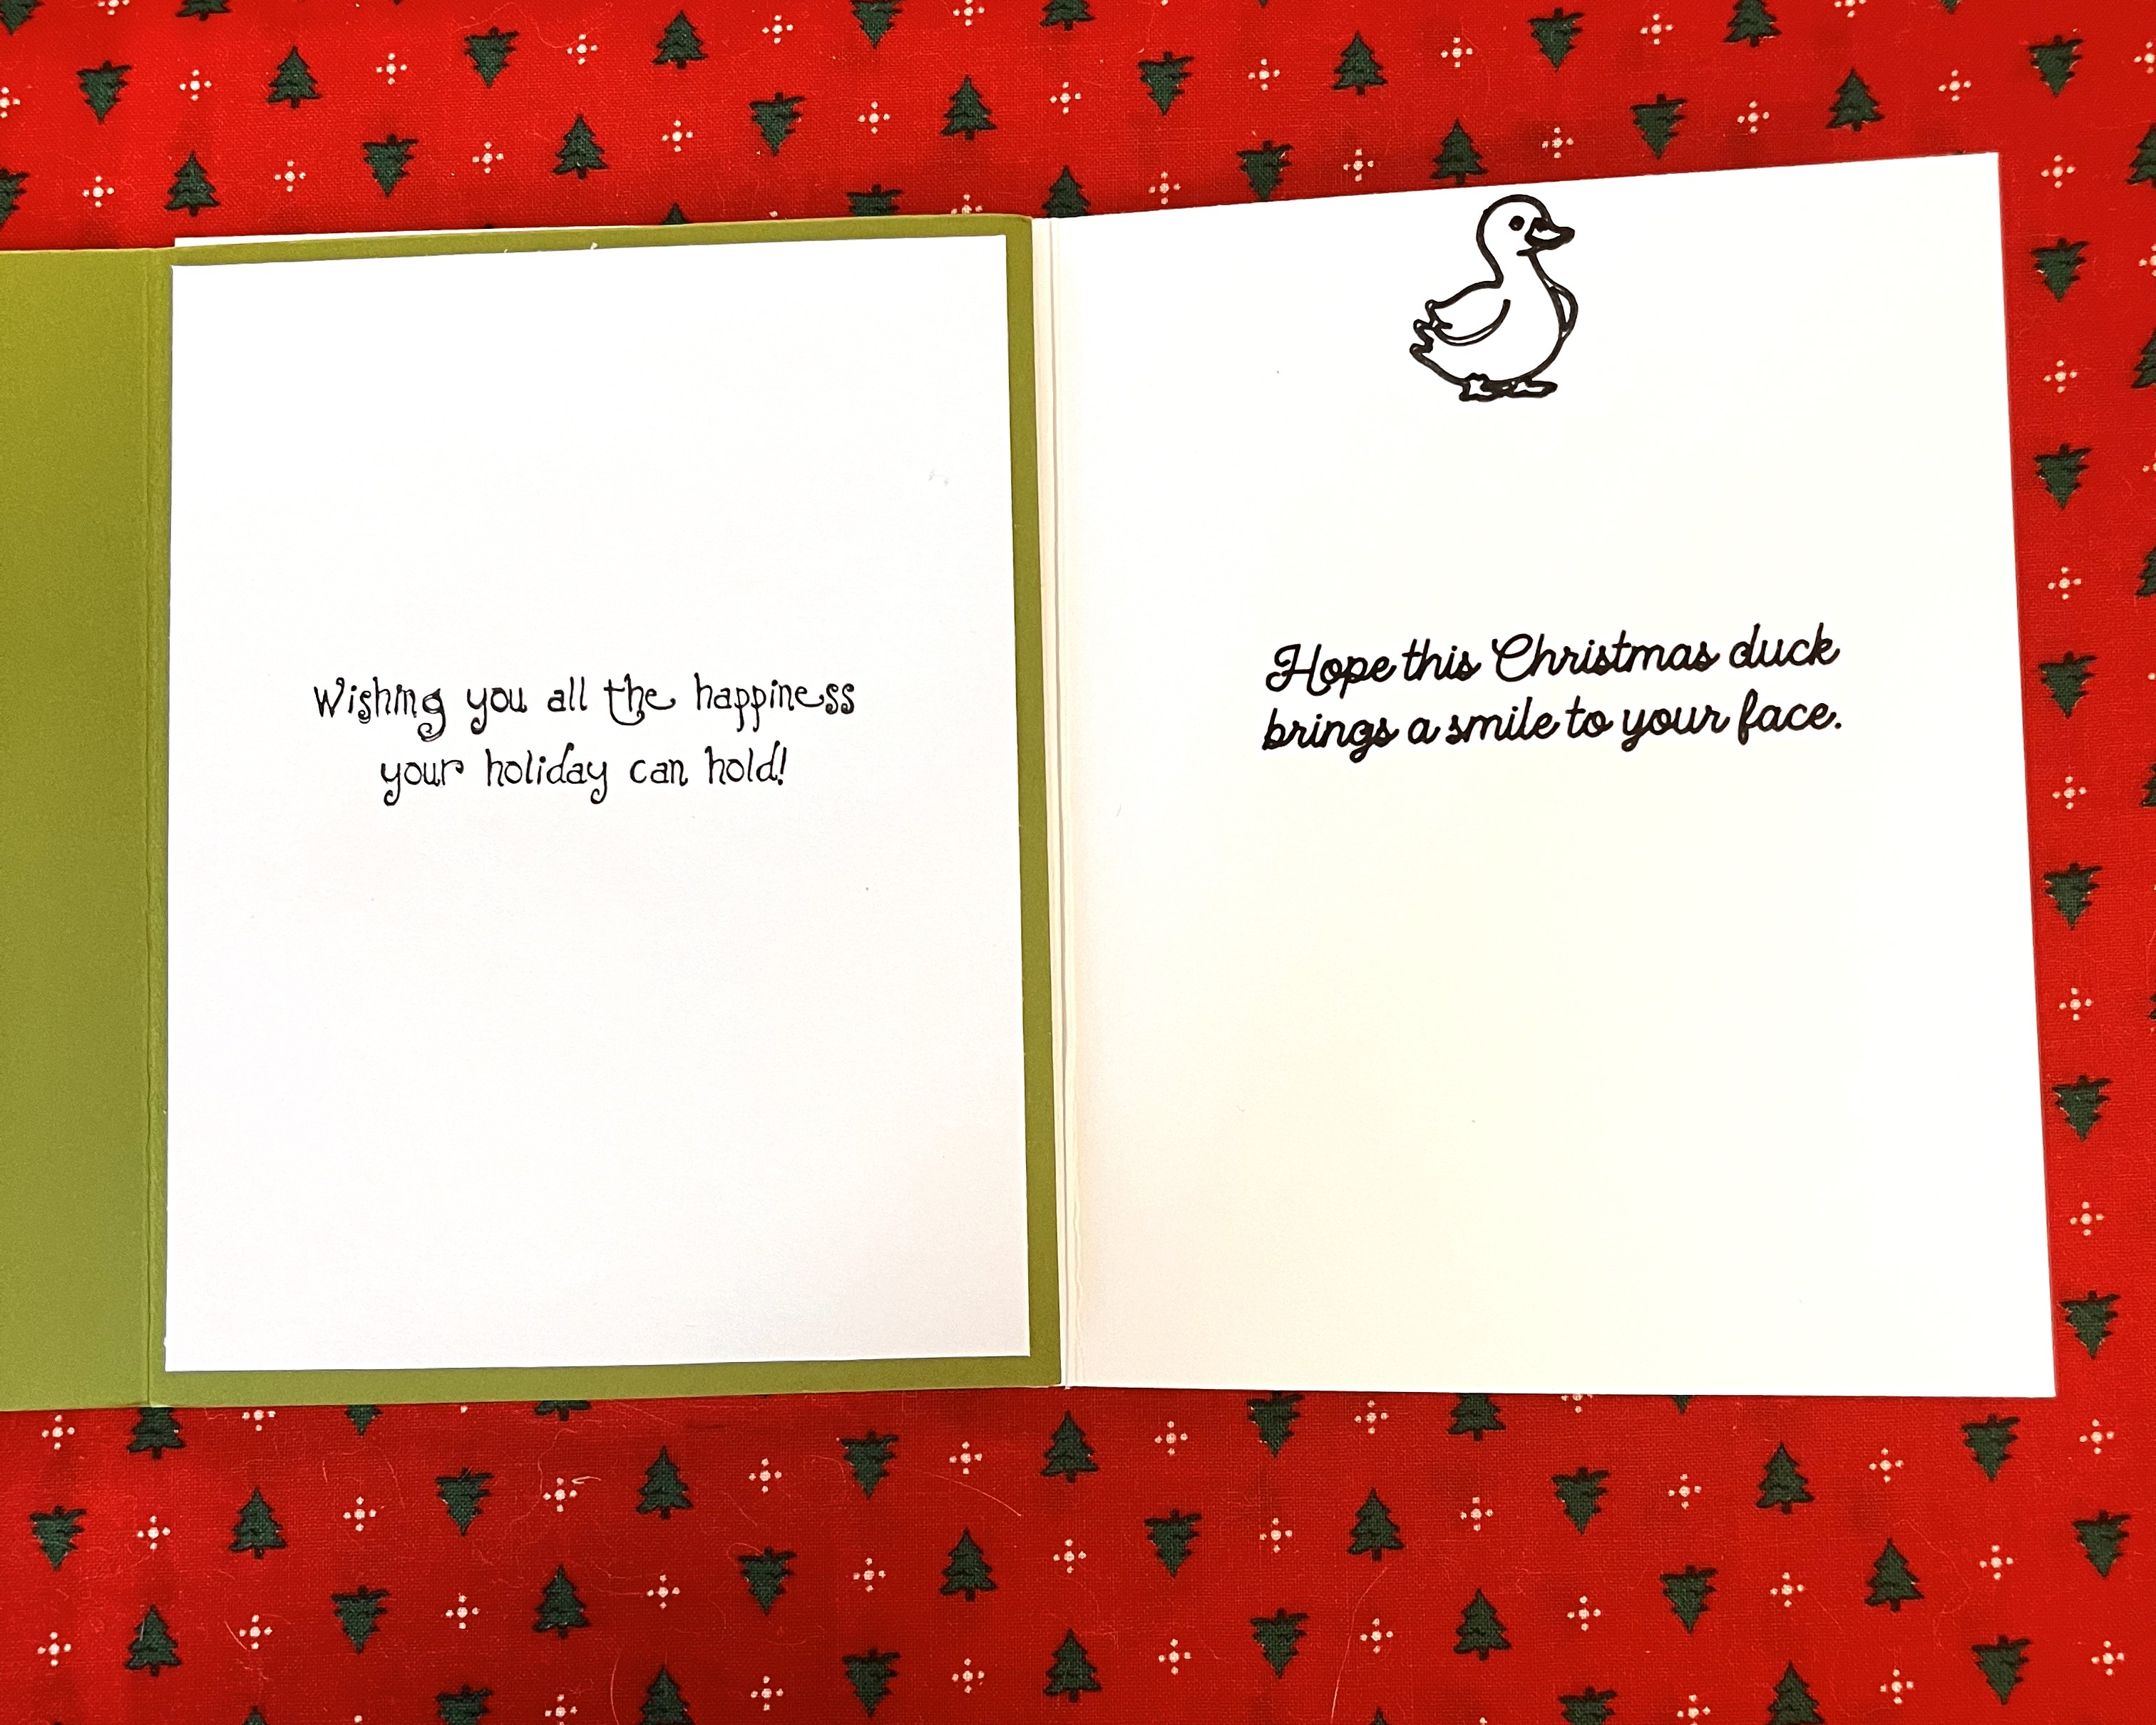 Wishing you all the happiness
your holiday can hold!
Hope this Christmas duck
brings a smile to your face.